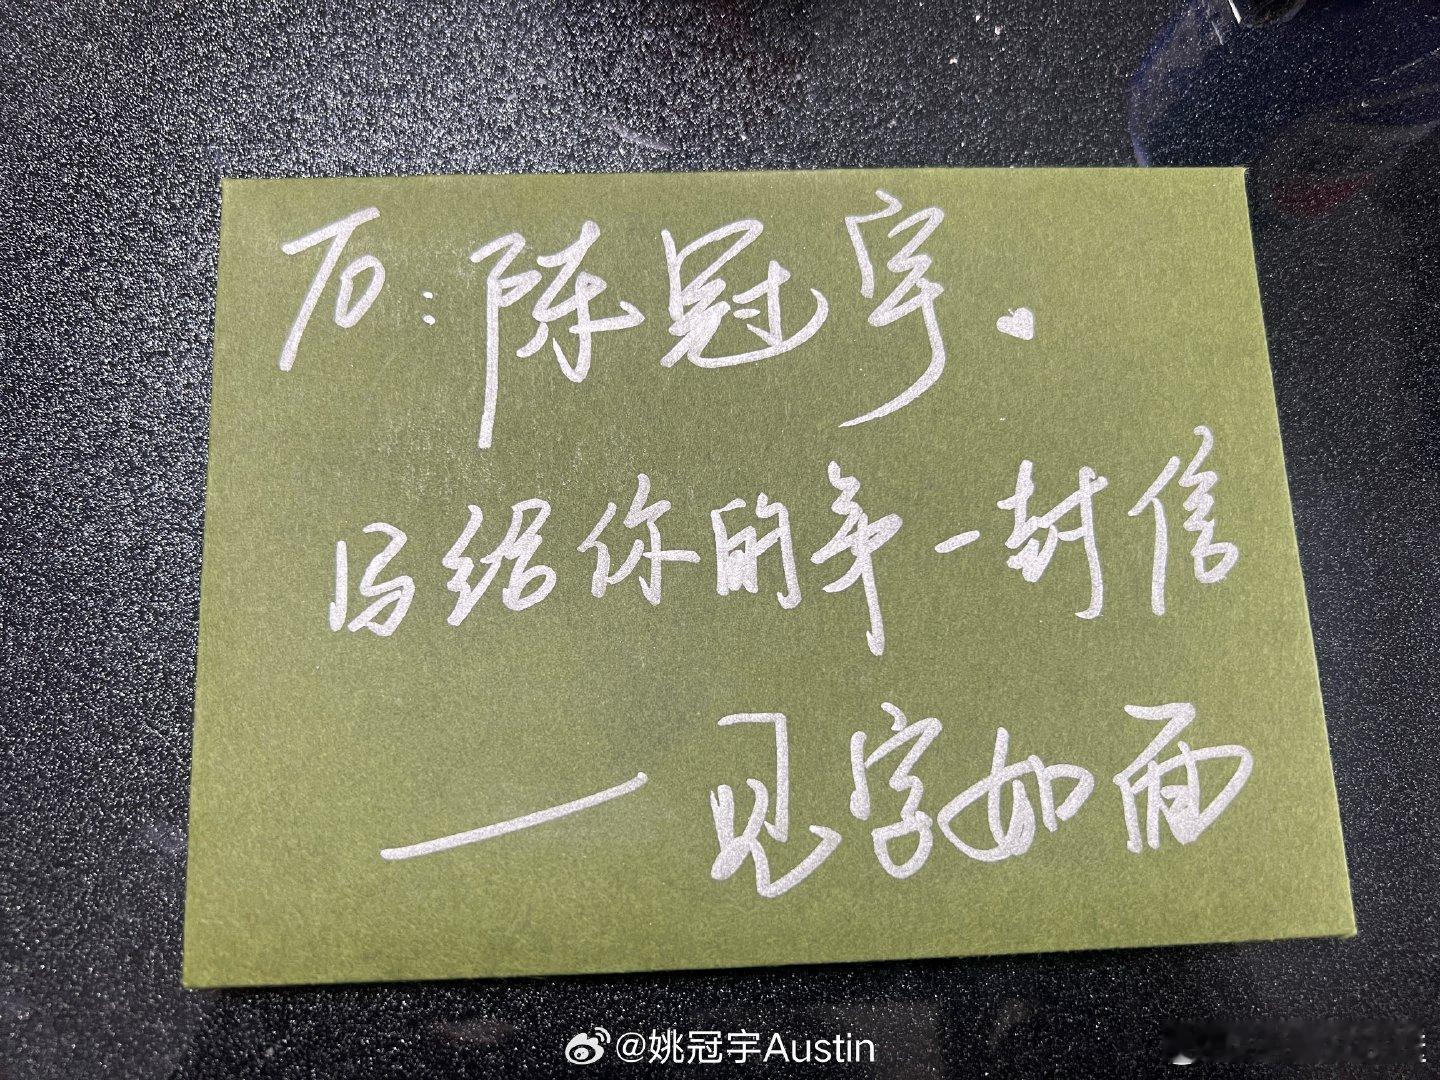 To:陈冠宇.
写给你的第一封信
——见字如面
@姚冠宇Austin